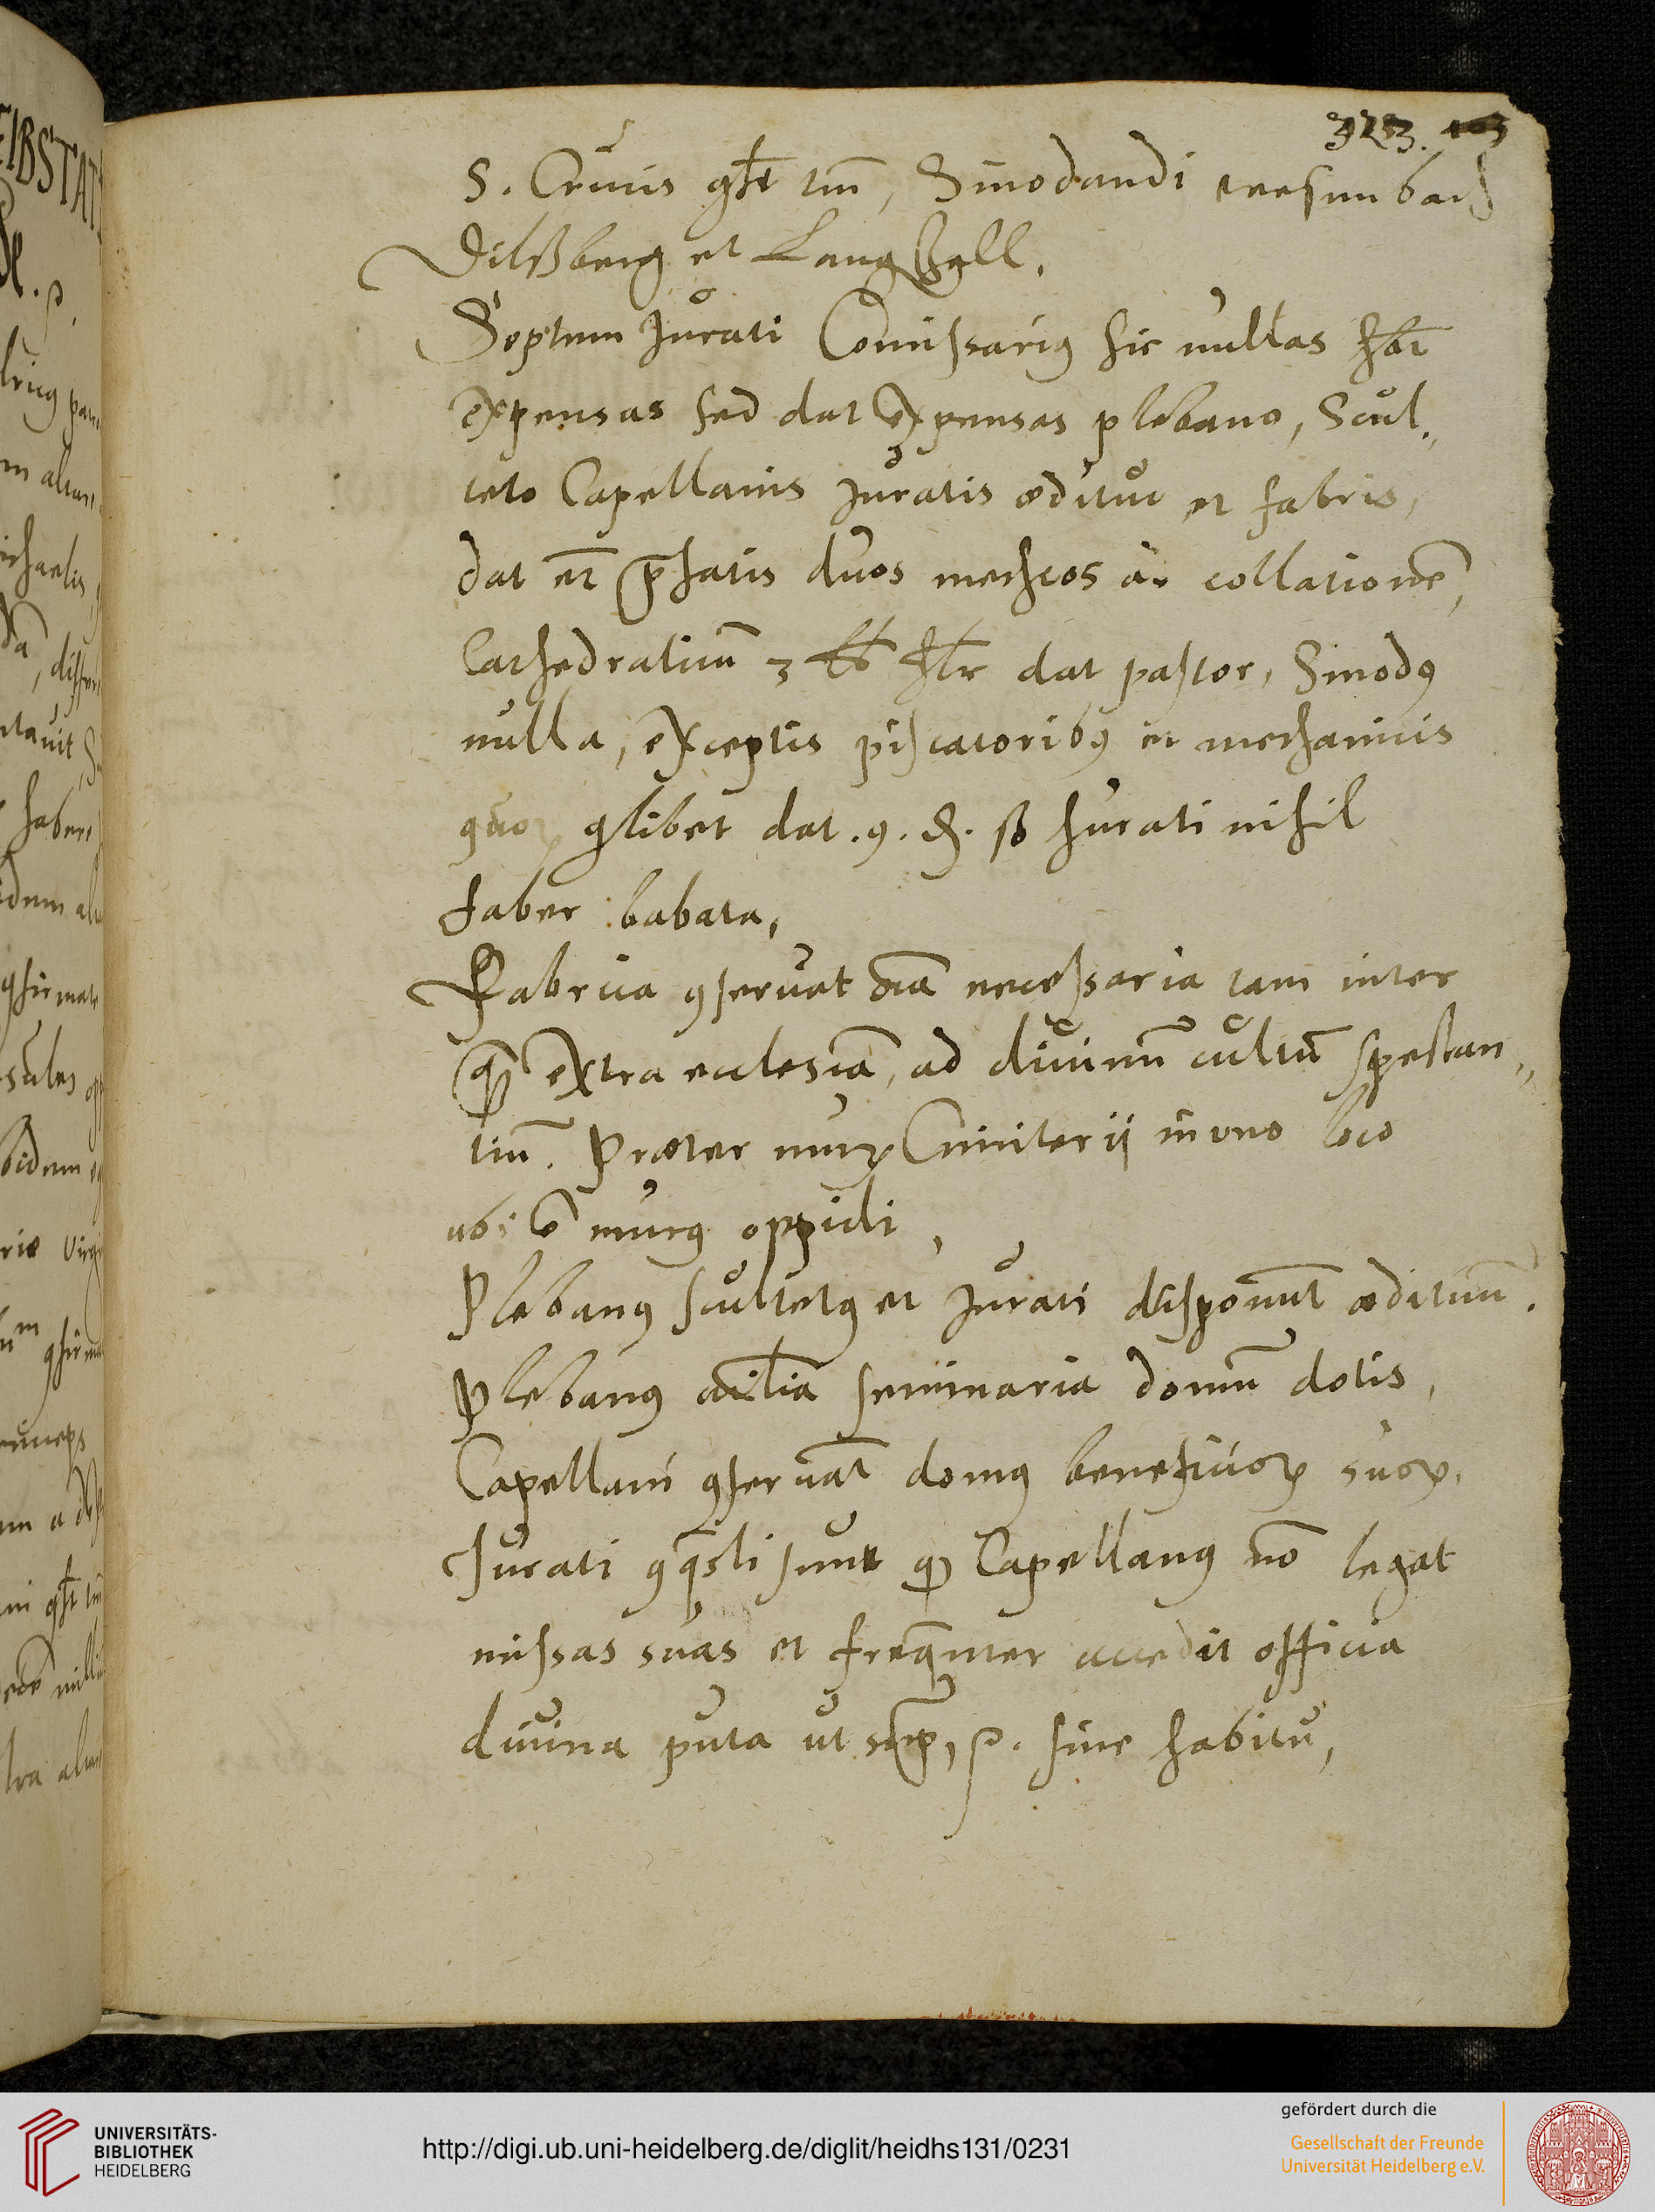 323. 103
S. Crucis gfīt tm̄, Sinodandi wesunbach
Dilsßberg et Langzell.
Septem Jurati Comissariꝯ hic nullas hr̄t
expensas sed dat expensas plebano, Scul„
teto Capellanis Juratis æditui et fabris,
dat et p̄fatis duos mechcos ī collationē,
Cathedraticum̄ 3 ℔ Hlr dat pastor, Sinodꝯ
nulla, exceptis piscatoribꝯ et mechanicis
quoꝝ qlibet dat . 9 . ₰. Jurati nihil
faber babata,
Fabrica ꝯseruat oīa necessaria tam inter
qͣ extra ecclesiā, ad diuinū cultū spectan„
tiū. Præter murꝰ Cimiterij in vno loco
ubi ē murꝯ oppidi,
Plebanꝯ scultetꝯ et Jurati disponūt ædituum̄.
Plebanꝯ seminaria domū dotis,
Capellani ꝯseruāt domꝯ beneficioꝝ suoꝝ,
Jurati ꝯq̄sti sunt qꝫ Capellanꝯ nō legat
missas suas et freqūnter accedit officia
diuina puta ut p. sine habitu,
UNIVERSITÄTS-
BIBLIOTHEK
HEIDELBERG
http://digi.ub.uni-heidelberg.de/diglit/heidhs131/0231
gefördert durch die
Gesellschaft der Freunde
Universität Heidelberg e.V.